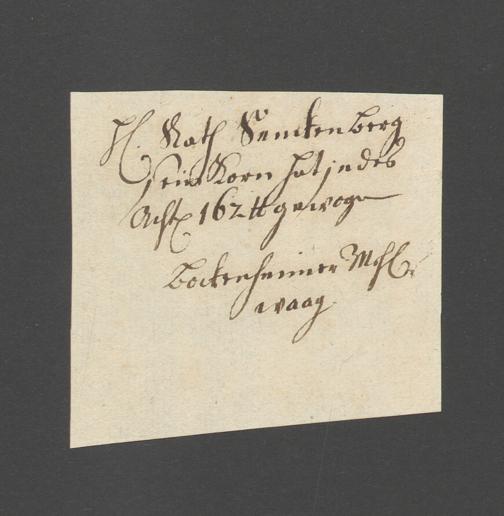 H. Rath Senckenberg
sein Korn hat jedes
Acht. 162 ℔ gewogen
Bockenheimer Mehl
waag